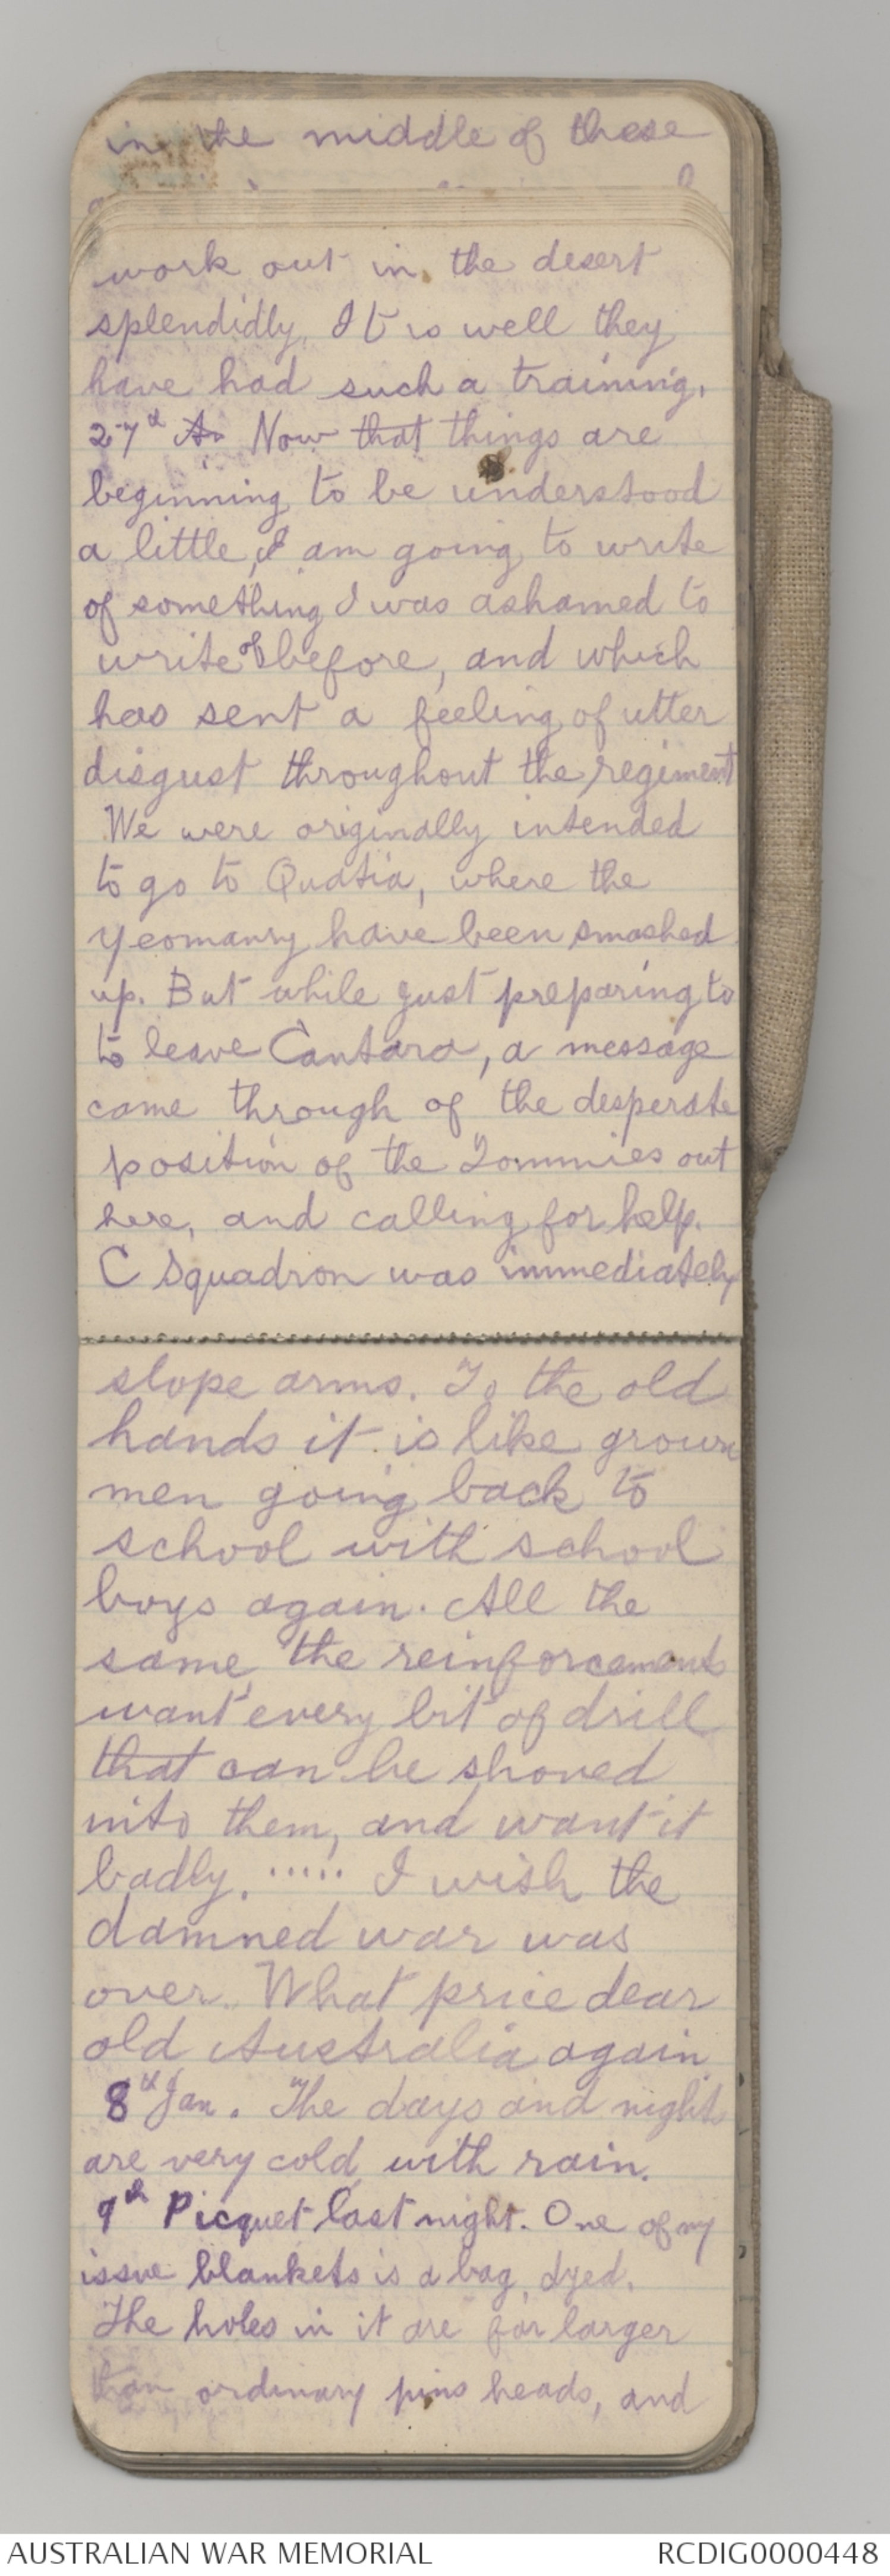 in the middle of these
work out in the desert
splendidly, It is well they
have had such a training.
27th Now that things are
beginning to be understood
a little, I am going to write
of something I was ashamed to
write of before, and which
has sent a feeling of utter
disgust throughout the regiment
We were originally intended
to go to Quatia, where the
yeomanry have been smashed
up. But while just preparing to
to leave Cantara, a message
came through of the desperate
position of the Tommies out
here, and calling for help.
C Squadron was immediately
slope arms. To the old
hands it is like grown
men going back to
school with school
boys again. All the
same, the reinforcements
want every bit of drill
that can be shoved
into them, and want it
badly. ..... I wish the
damned war was
over. What price dear
old Australia again
8th Jan. The days and nights
are very cold, with rain.
9th Picquet last night. One of my
issue blankets is a bag, dyed.
The holes in it are far larger
than ordinary pins heads, and
AUSTRALIAN WAR MEMORIAL
RCDIG0000448